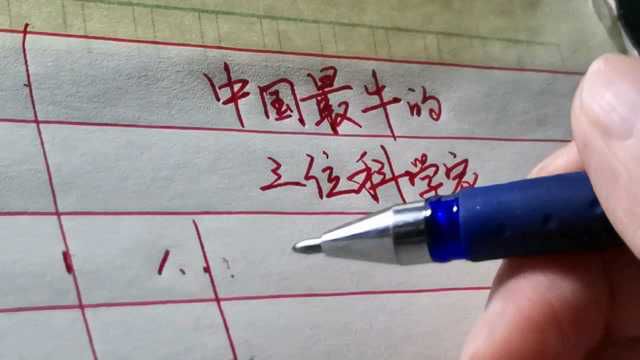 中国最牛的
三位科学家
1、